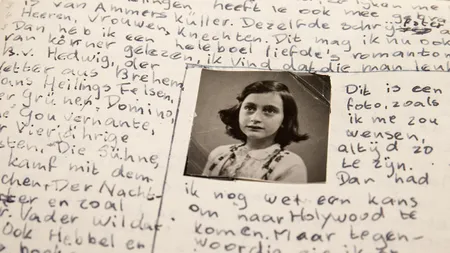 is van Ammers Küller. Dezelfde
Heeren, Vrouwen, Knechten. Dit mag ik nu ook
Dan heb ik een heleboel
van Körner gelezen, ik vind dat die man leuk
B.v. Hedwig, der
Vetter aus Bremen
ans Heilings Felsen,
er grünen Domino,
Gouvernante,
r Vierjährige
sten. Die Sühne,
kampf mit dem
chen. Der Nacht-
ter en zoal
r. Vader wil dat
Ook Hebbel en
Dit is een
foto, zoals
ik me zou
wensen,
altijd zo
te zijn.
Dan had
ik nog wel een kans
om naar Holywood te
komen. Maar tegen-
woordig zie ik er